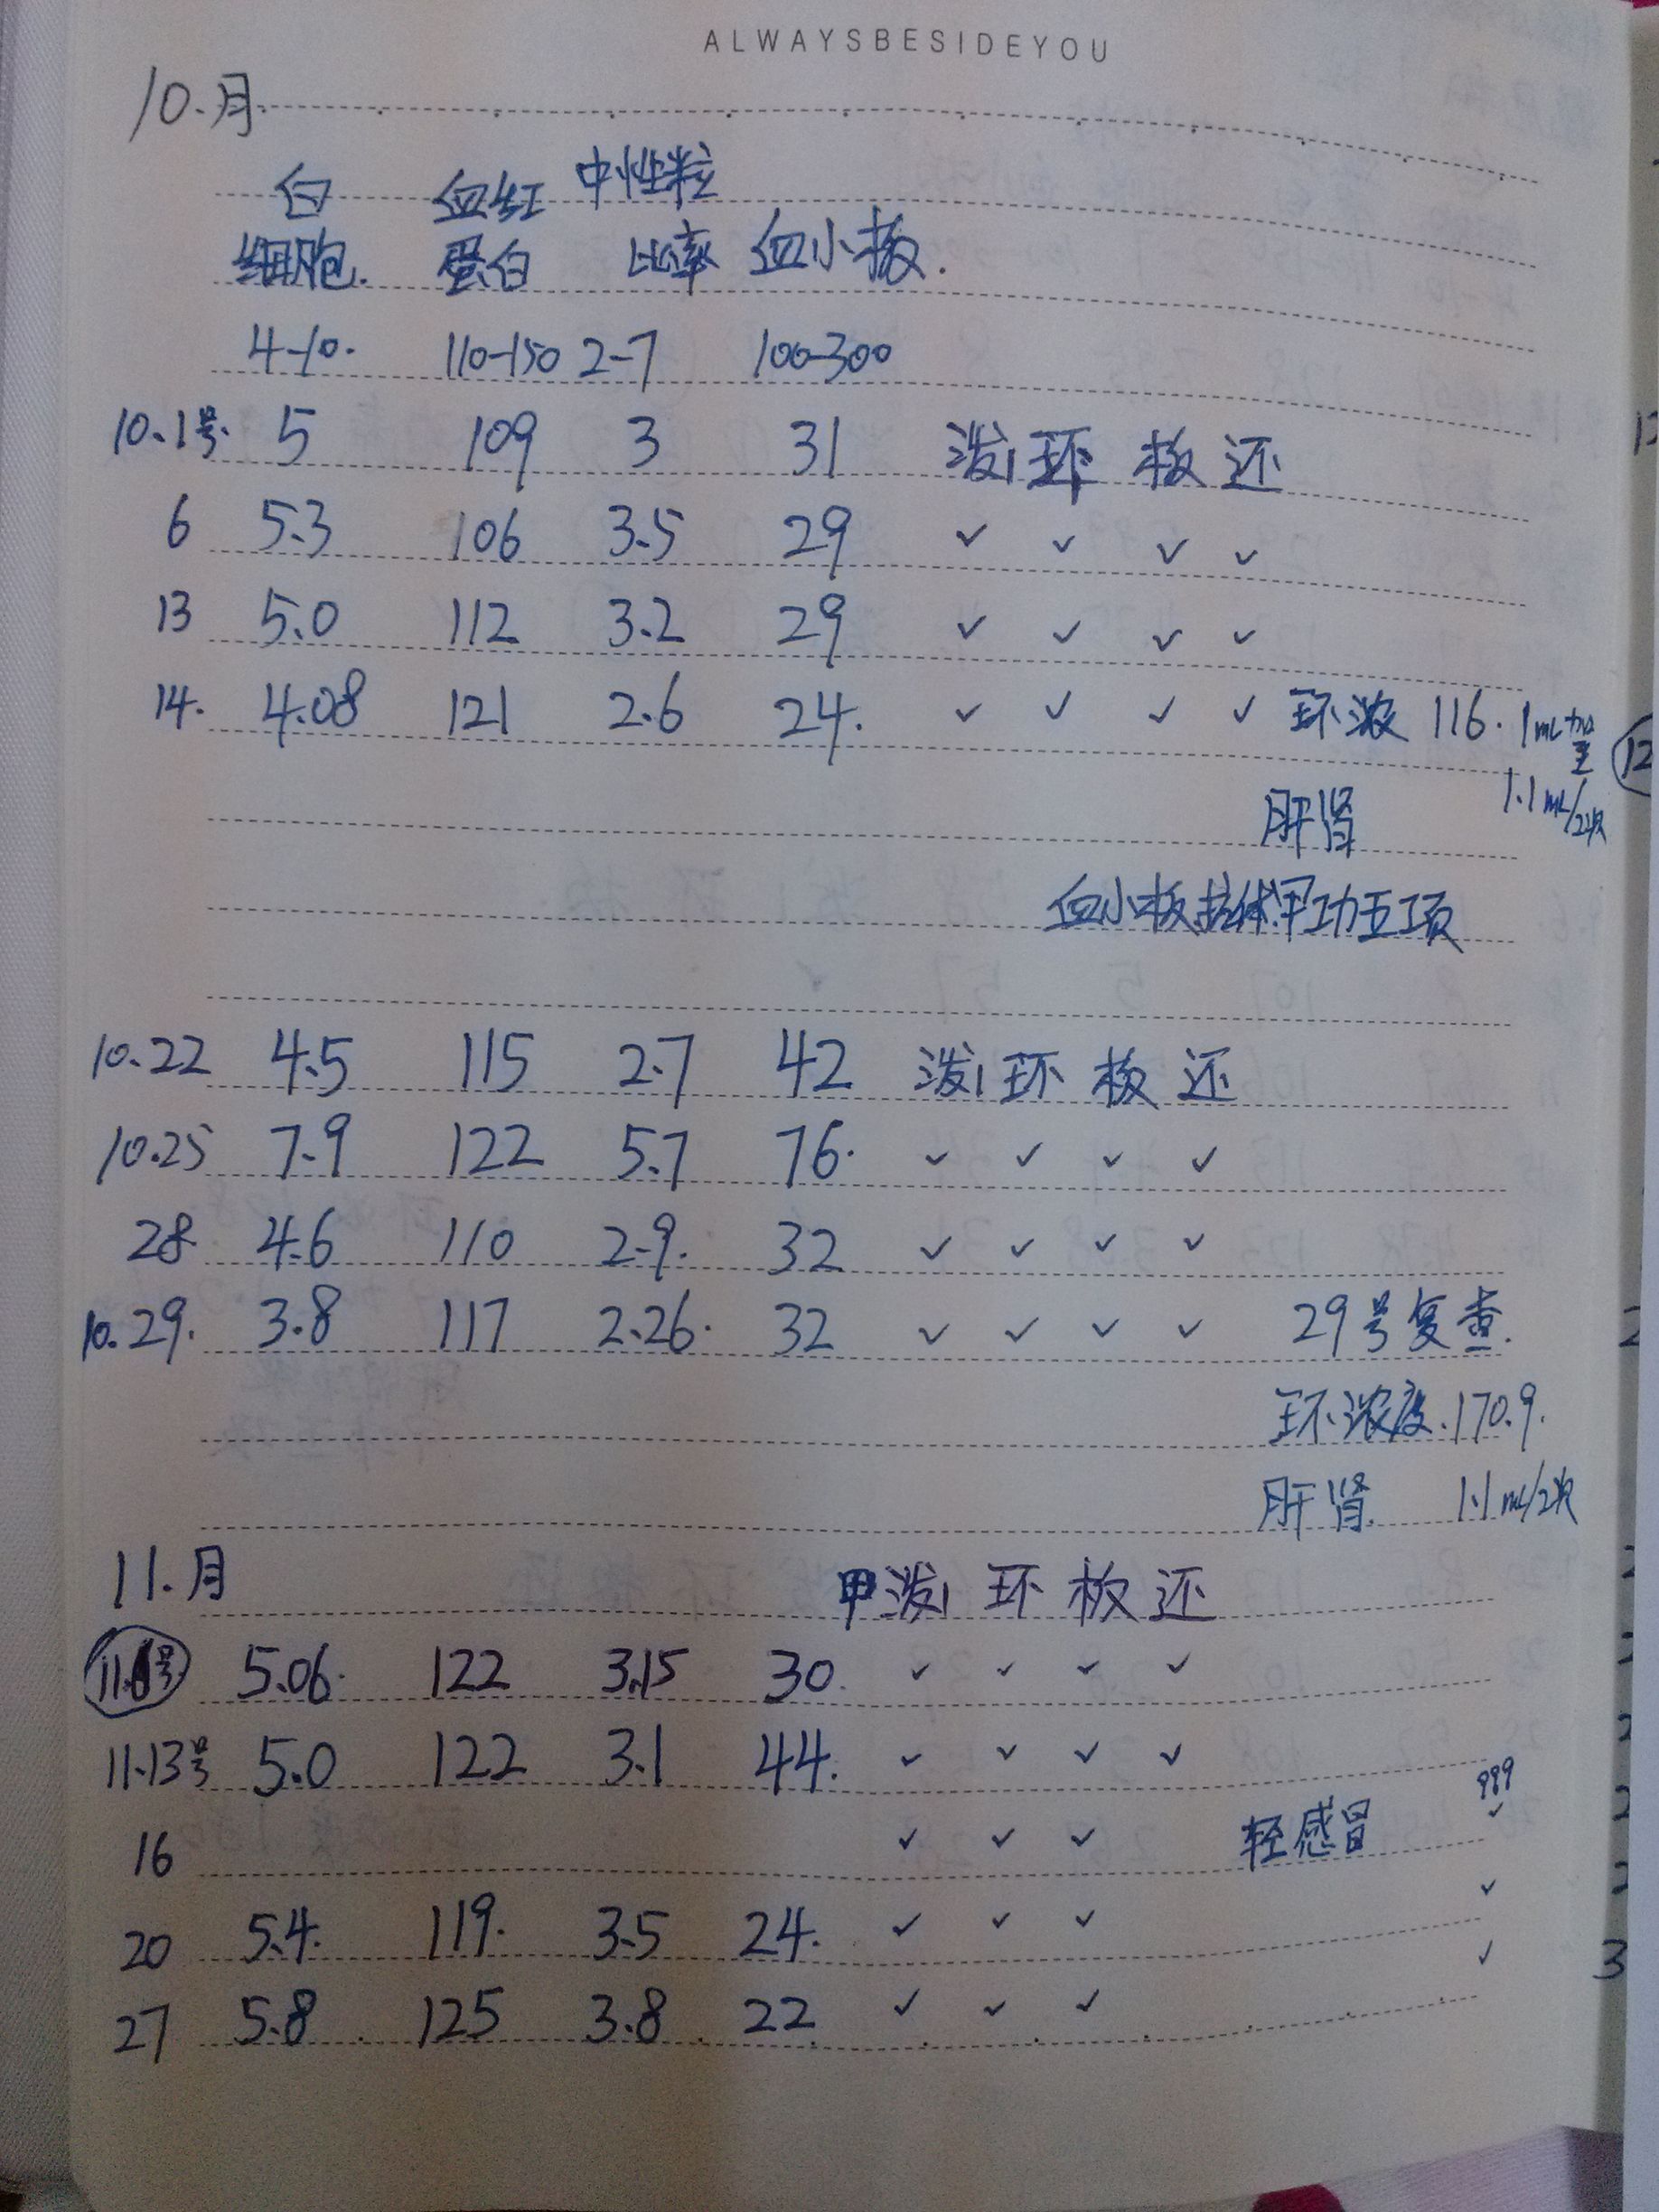 ALWAYSBESIDEYOU
10.月
白 血红 中性粒
细胞. 蛋白 比率 血小板.
4-10. 110-150 2-7 100-300
10.1号. 5 109 3 31 泼 环 板 还
6 5.3 106 3.5 29 ✓ ✓ ✓ ✓
13 5.0 112 3.2 29 ✓ ✓ ✓ ✓
14. 4.08 121 2.6 24. ✓ ✓ ✓ ✓ 环浓 116. 1mL加至
1.1mL/2次
肝肾
血小板抗体甲功五项
10.22 4.5 115 2.7 42 泼 环 板 还
10.25 7.9 122 5.7 76. ✓ ✓ ✓ ✓
28 4.6 110 2.9. 32 ✓ ✓ ✓ ✓
10.29. 3.8 117 2.26. 32 ✓ ✓ ✓ ✓ 29号复查.
环浓度.170.9.
肝肾. 1.1mL/2次
11.月 甲泼 环 板 还
11.6号 5.06. 122 3.15 30. ✓ ✓ ✓ ✓
11.13号 5.0 122 3.1 44. ✓ ✓ ✓ ✓
999
16 ✓ ✓ ✓ 轻感冒 ✓
✓
20 5.4. 119. 3.5 24. ✓ ✓ ✓
✓
27 5.8 125 3.8 22 ✓ ✓ ✓